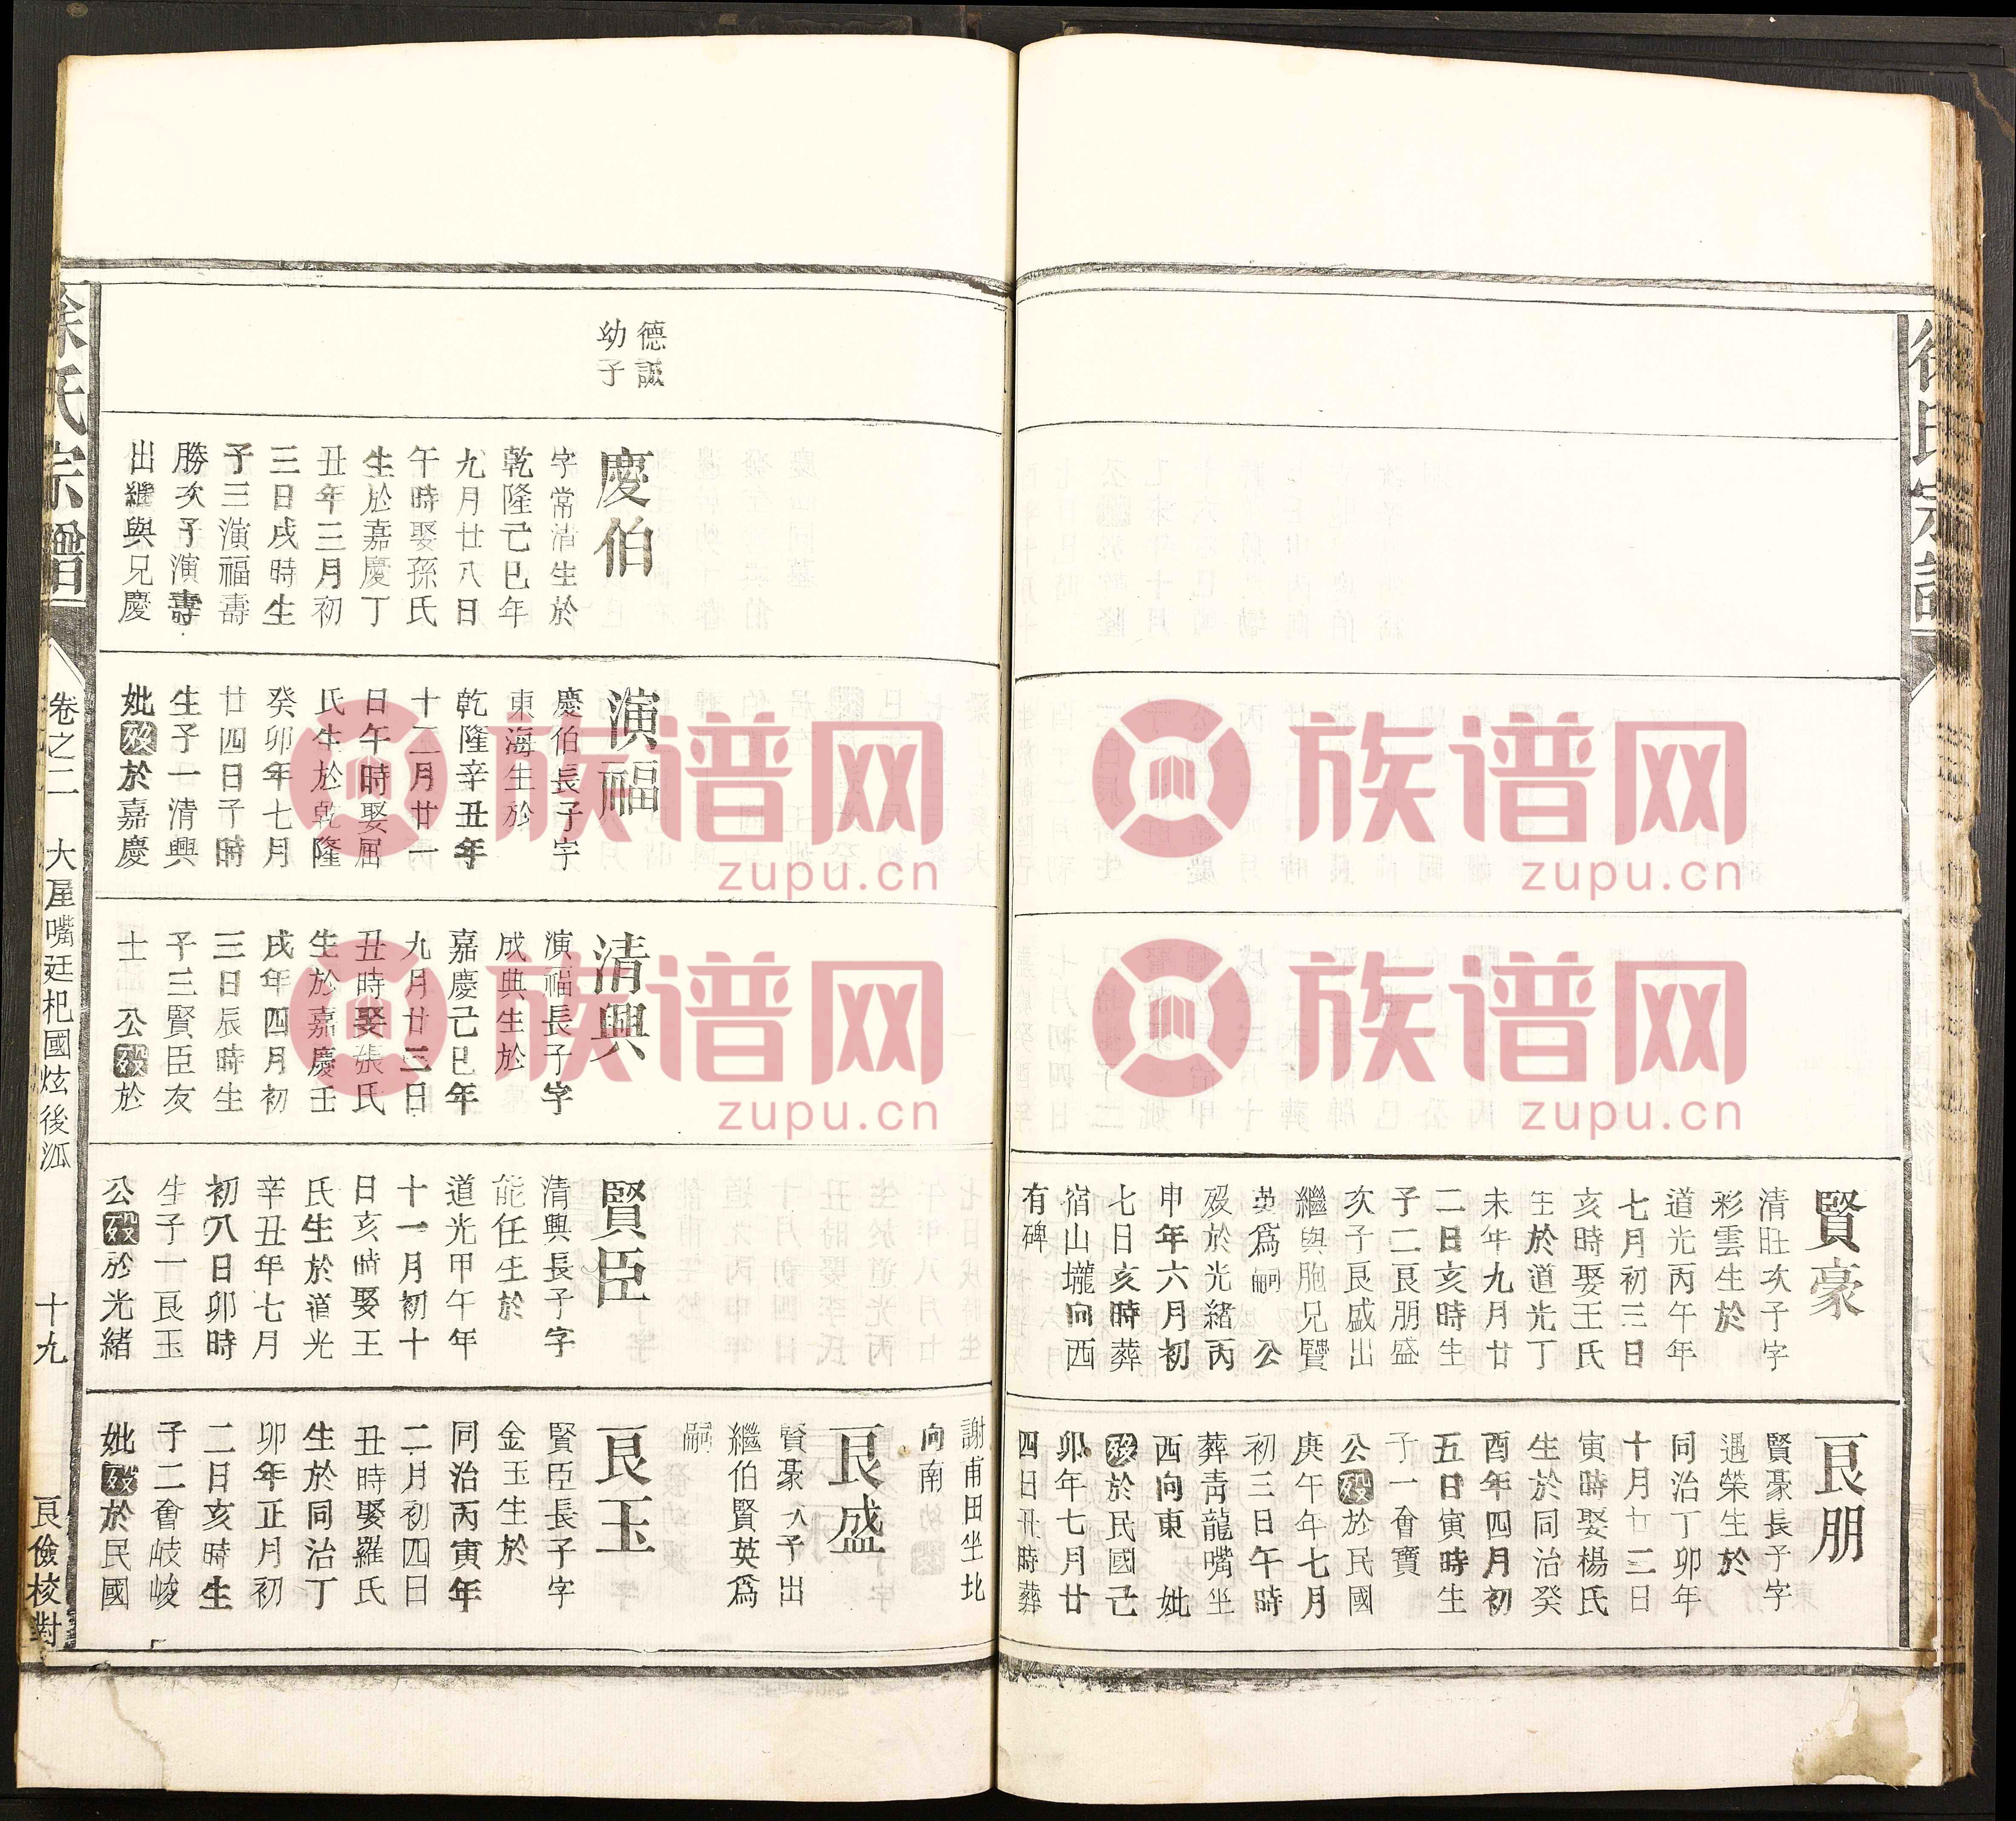 徐氏宗譜
賢豪
清旺次子字
彩雲生於
道光丙午年
七月初三日
亥時娶王氏
生於道光丁
未年九月廿
二日亥時生
子二艮朋盛
次子艮盛出
繼與胞兄賢
英爲嗣 公
殁於光緒丙
申年六月初
七日亥時葬
宿山壠向西
有碑
艮朋
賢豪長子字
遇榮生於
同治丁卯年
十月廿三日
寅時娶楊氏
生於同治癸
酉年四月初
五日寅時生
子一會寶
公殁於民國
庚午年七月
初三日午時
葬青龍嘴坐
西向東 妣
殁於民國己
卯年七月廿
四日丑時葬
德誠
幼子
慶伯
字常清生於
乾隆己巳年
九月廿八日
午時娶孫氏
生於嘉慶丁
丑年三月初
三日戌時生
子三演福壽
勝次子演壽
出繼與兄慶
演福
慶伯長子字
東海生於
乾隆辛丑年
十二月廿一
日午時娶屈
氏生於乾隆
癸卯年七月
廿四日子時
生子一清興
妣殁於嘉慶
清興
演福長子字
成典生於
嘉慶己巳年
九月廿三日
丑時娶張氏
生於嘉慶壬
戌年四月初
三日辰時生
子三賢臣友
士 公殁於
賢臣
清興長子字
能任生於
道光甲午年
十一月初十
日亥時娶王
氏生於道光
辛丑年七月
初八日卯時
生子一艮玉
公殁於光緒
謝甫田坐北
向南
艮盛
賢豪次子出
繼伯賢英爲
嗣
艮玉
賢臣長子字
金玉生於
同治丙寅年
二月初四日
丑時娶羅氏
生於同治丁
卯年正月初
二日亥時生
子二會岐峻
妣殁於民國
徐氏宗譜
卷之二 大屋嘴廷杞國炫後派 十九 艮儉校對
族谱网
zupu.cn
族谱网
zupu.cn
族谱网
zupu.cn
族谱网
zupu.cn